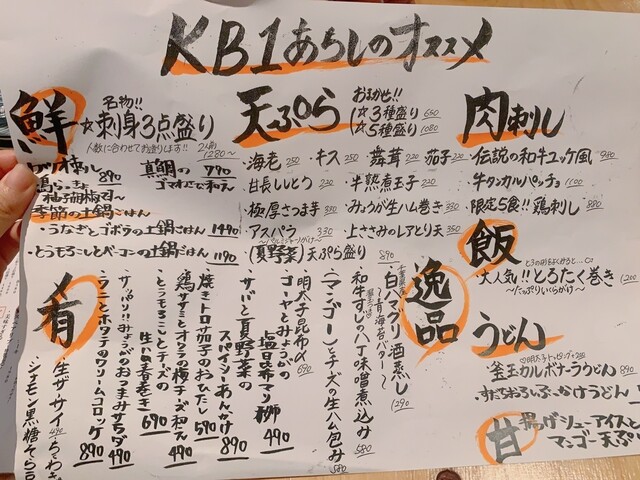 KB1あらしのオススメ
鮮
名物!!
☆刺身3点盛り
人数に合わせてお造りします!! 2人前 1280~
890
真鯛の
ゴマだれ和え 790
柚子胡椒君
季節の土鍋ごはん
・うなぎとゴボウの土鍋ごはん 1490
・とうもろこしとベーコンの土鍋ごはん 1190
天ぷら
おまかせ!!
☆3種盛り 650
☆5種盛り 1080
・海老 250
・キス 250
・舞茸 220
・茄子 220
・甘長ししとう 220
・半熟煮玉子 220
・極厚さつま芋 330
・みょうが生ハム巻き 330
・アスパラ 330
・上ささみのレアとり天 350
・(夏野菜)天ぷら盛り 890
肉刺し
・伝説の和牛ユッケ風 980
・牛タンカルパッチョ 1100
・限定5食!! 鶏刺し 880
飯
・大人気!! とろたく巻き 1200
~たっぷりいくらがけ~
うどん
・釜玉カルボナーラうどん 890
・すだちおろしぶっかけうどん
甘
揚げシューアイスと
マンゴー天ぷ
逸品
・白ハマグリ酒蒸し 1290
~青海苔バター~
・和牛すじの八丁味噌煮込み 580
・(マンゴー)とチーズの生ハム包み 580
・明太子昆布〆 690
・ゴーヤとみょうがの
塩昆布マリネ 490
・サバと夏野菜の
スパイシーあんかけ 890
・焼きトロ茄子のおひたし 590
・鶏ササミとオクラの梅チーズ和え 490
・とうもろこしとチーズの
生ハム春巻き 690
・サッパリ!!みょうがのおつまみサラダ 490
・ウニとホタテのクリームコロッケ 890
肴
・生ザサイ 490